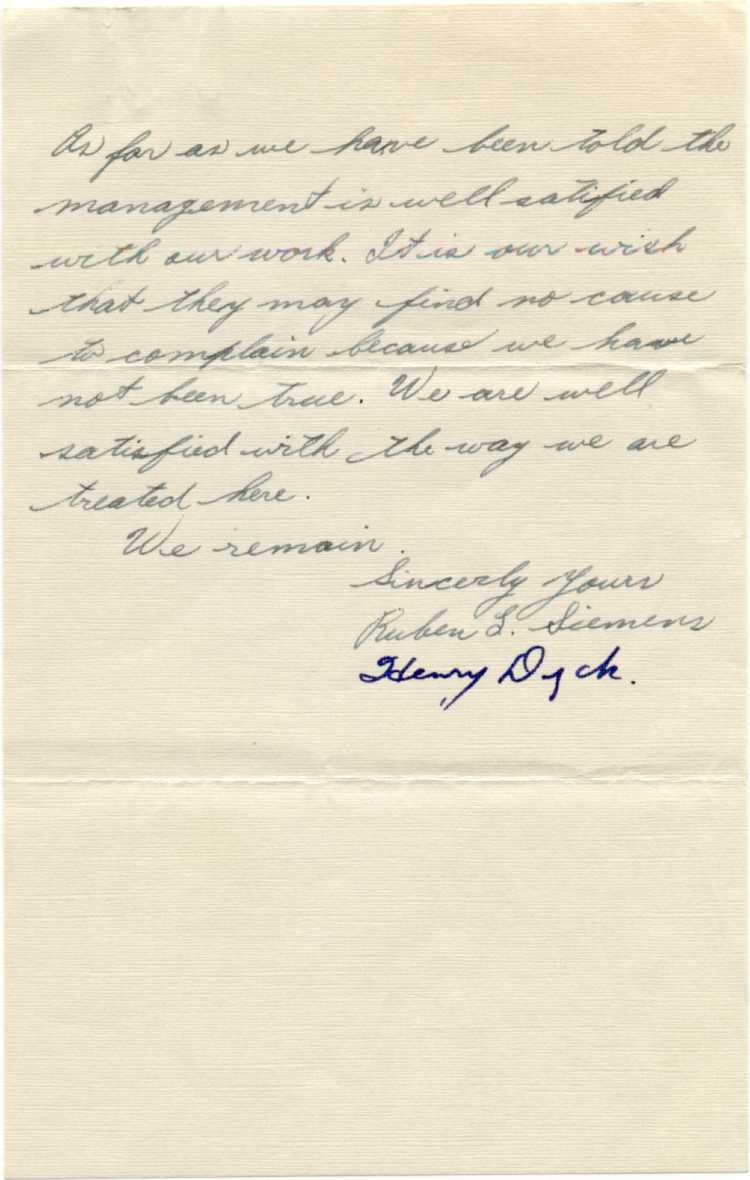 As far as we have been told the
management is well satified
with our work. It is our wish
that they may find no cause
to complain because we have
not been true. We are well
satisfied with the way we are
treated here.
We remain.
Sincerly Yours
Ruben S. Siemens
Henry Dyck.